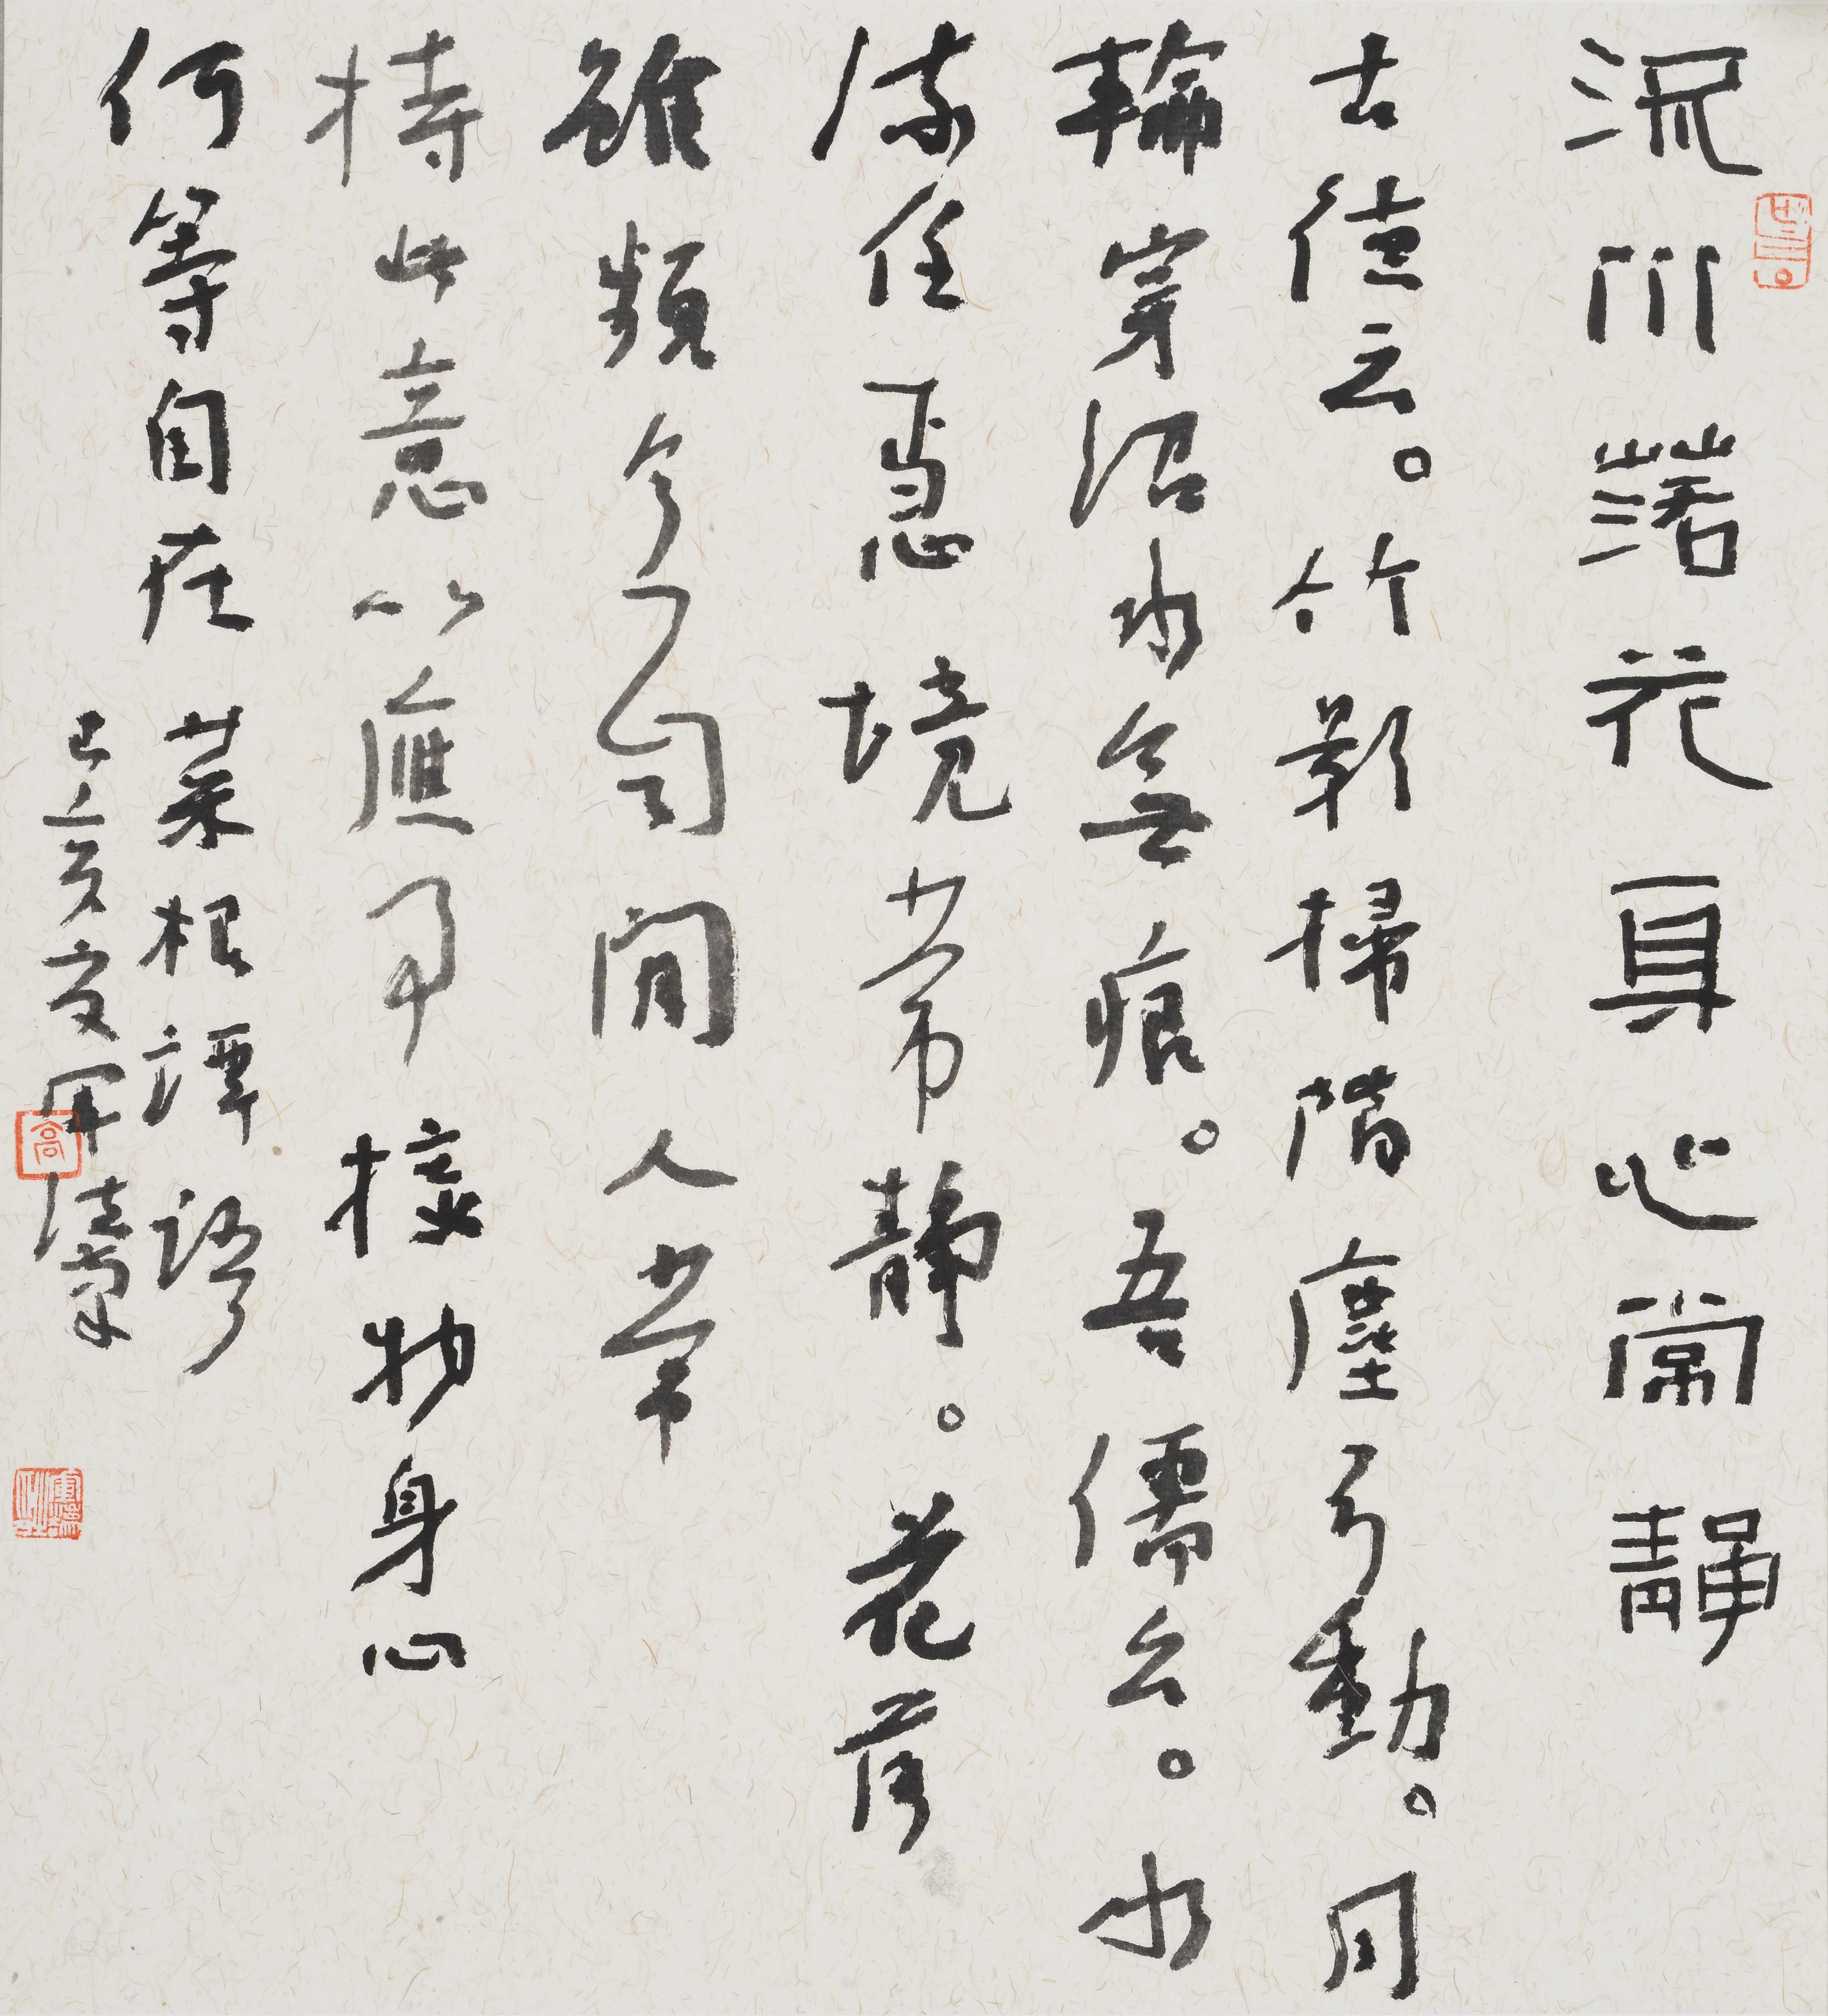 流水落花真心常靜
古德云。竹影掃階塵不動。月
輪穿沼水無痕。吾儒云。水
流任急境常靜。花落
雖頻意自閒人常
持此意以應事接物身心
何等自在 菜根譚語
己亥夏軍